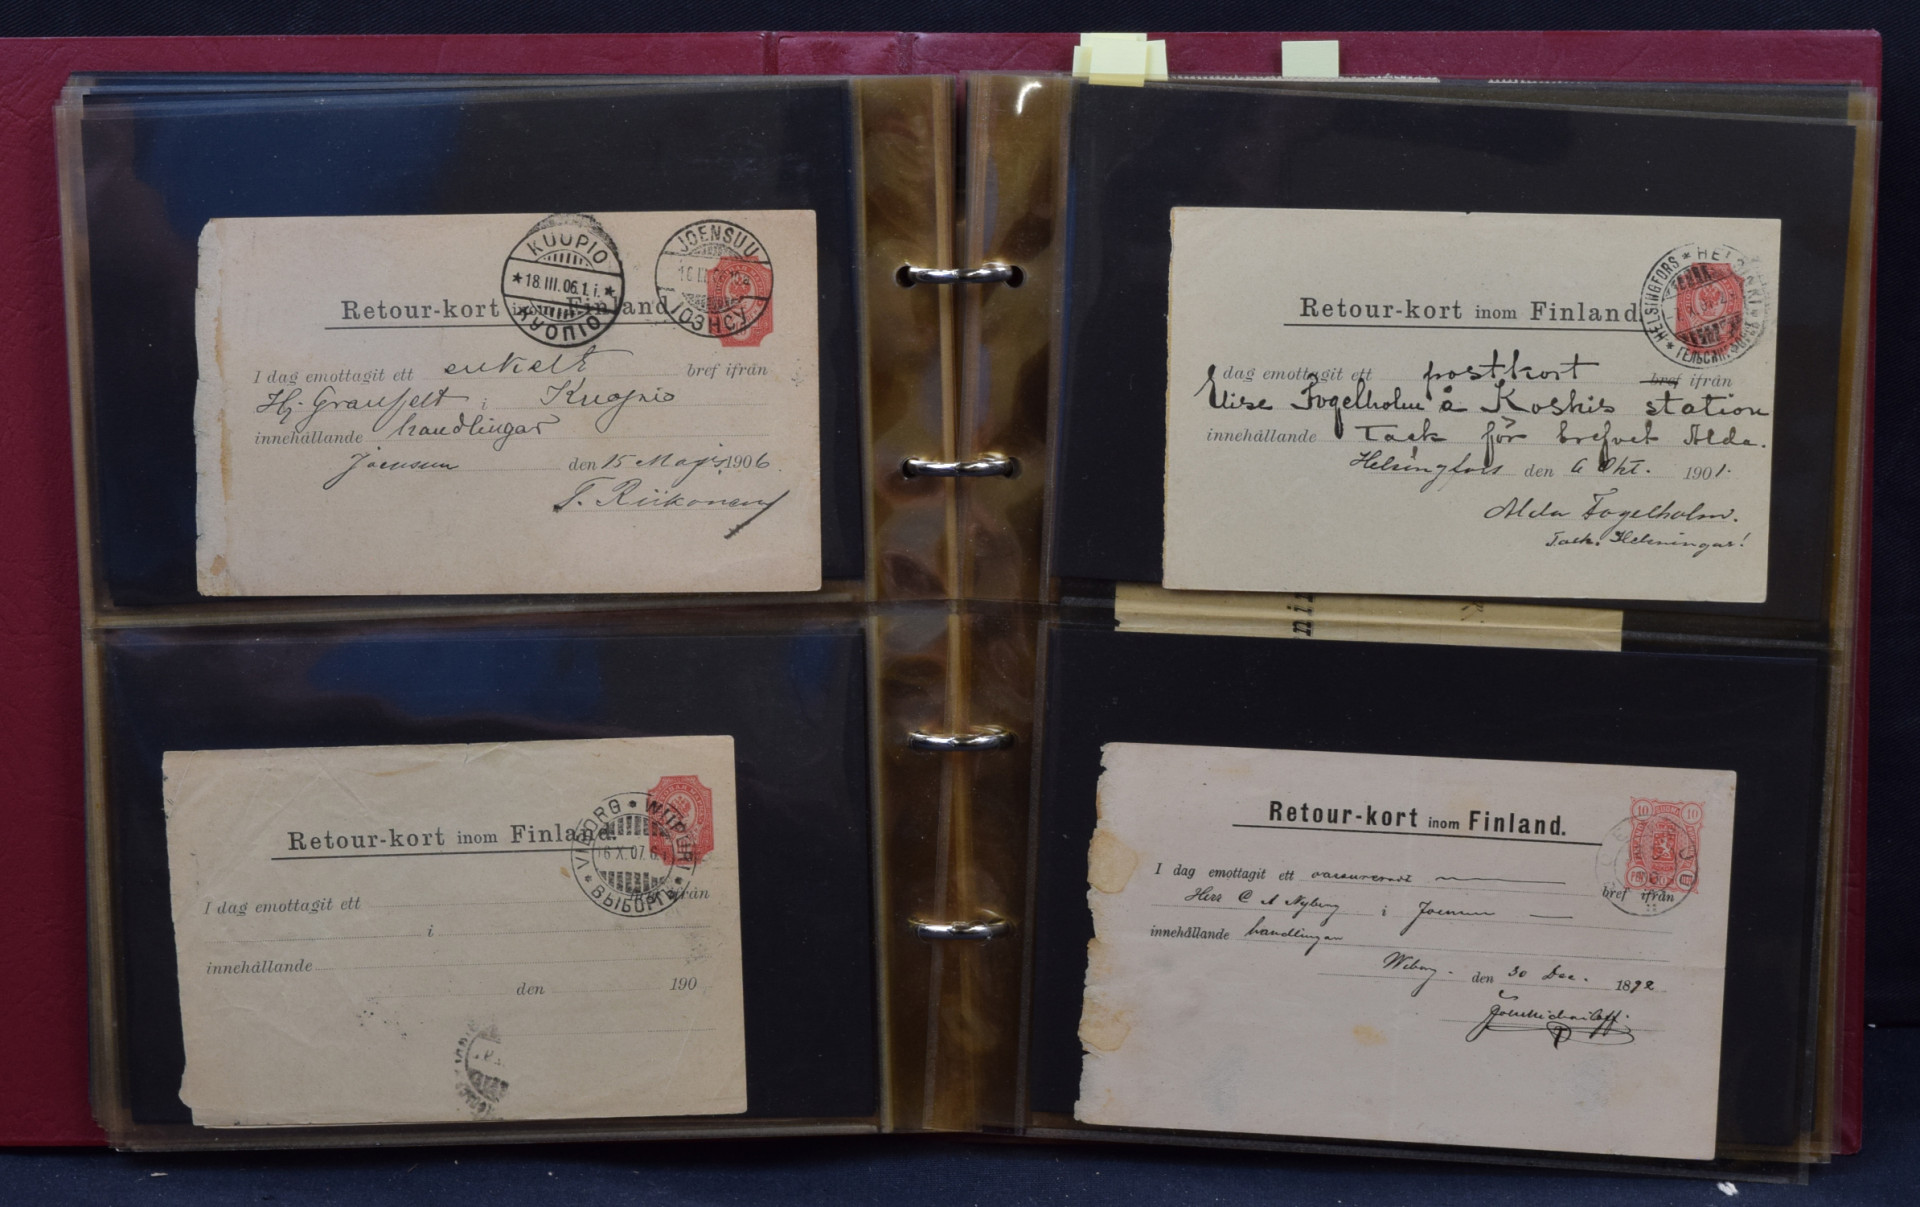 KUOPIO
*18.III.06.1.i.*
КУОПІО
JOENSUU
ІОЭНСУ
Retour-kort inom Finland.
I dag emottagit ett enkelt bref ifrån
Hj. Granfelt i Kuopio
innehållande handlingar
Joensuu den 15 Mars 1906.
T. Riikonen
HELSINGFORS * HELSINKI *
ГЕЛЬСИНГФОРСЪ
Retour-kort inom Finland.
I dag emottagit ett postkort bref ifrån
Elise Fogelholm å Koskis station
innehållande Tack för brefvet Alda.
Helsingfors den 6 Okt. 1901.
Alda Fogelholm.
Tack. Helsningar!
VIBORG * WIIPURI
6.X.07.6
* ВЫБОРГЪ *
Retour-kort inom Finland.
I dag emottagit ett ifrån
i
innehållande
den 190
Retour-kort inom Finland.
10 10
I dag emottagit ett bref ifrån
Herr C A Nyberg i Joensuu
innehållande handlingar
Wiborg. den 30 Dec. 1892